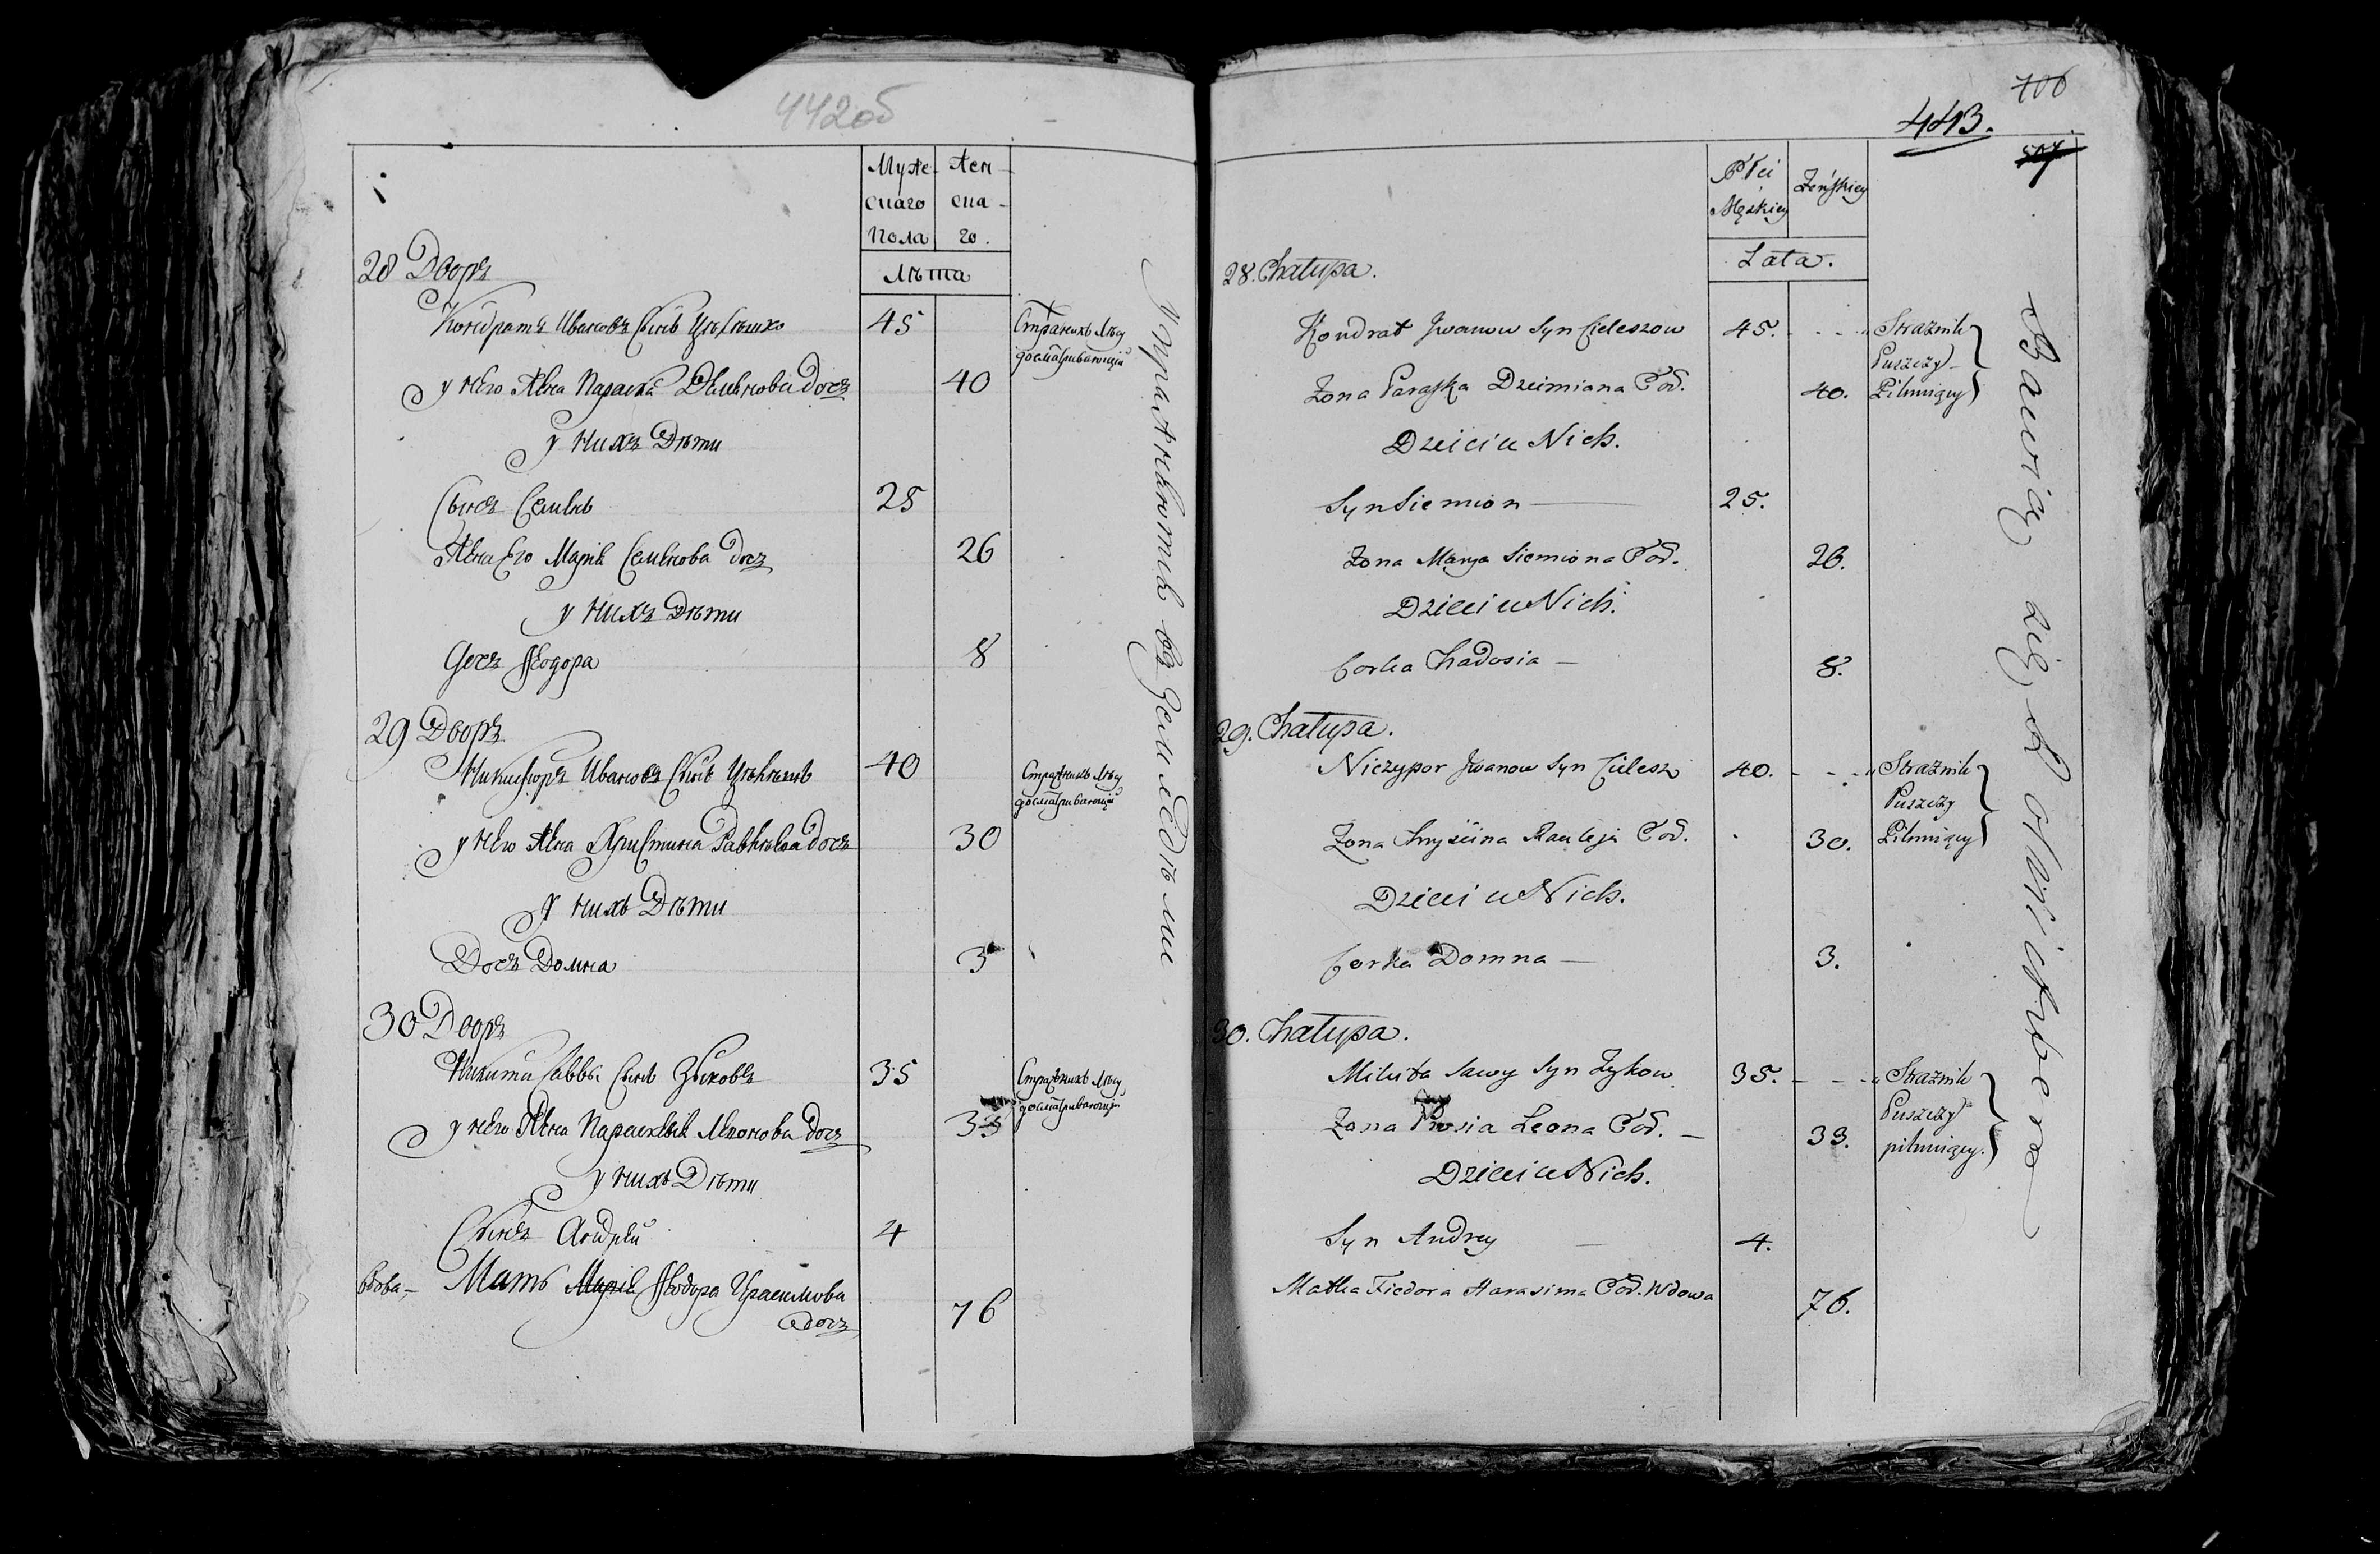 442об
Муже-
скаго
Пола
Жен-
ска-
го.
Лѣта
28 Дворъ
Кондратъ Ивановъ Сынъ
45
Стражникъ Лѣсу
досматривающій
у него Жена Параска Демьянова Дочь
40
у нихъ Дѣти
Сынъ Семенъ
25
Жена Его Марія Семенова дочь
26
у нихъ Дѣти
Дочь Ѳеодора
8
29 Дворъ
Никифоръ Ивановъ Сынъ
40
Стражникъ Лѣсу
досматривающій
у него Жена Христина дочь
30
У нихъ Дѣти
Дочь Домна
3
30 Дворъ
Никита Саввы Сынъ Зыковъ
35
Стражникъ Лѣсу
досматривающій
у него Жена Параскевія Леонова дочь
33
у нихъ Дѣти
Сынъ Андрей
4
вдова - Мать Марія Ѳеодора Герасимова
дочь
76
Упражняются въ Земледѣліе
706
443.
507
Płci
Męskiey
Żeńskiey
Lata.
28. Chałupa.
Kondrat Iwanow Syn Cieleszow
45.
Strażnik
Puszczy
Pilnuiący
Żona Paraska Dziemiana Cór.
40.
Dzieci u Nich.
Syn Siemion
25.
Żona Marya Siemiona Cór.
26.
Dzieci u Nich.
Corka Chadosia
8.
29. Chałupa.
Niczypor Iwanow Syn Cielesz
40.
Strażnik
Puszczy
Pilnuiący
Żona Chryścina Cór.
30.
Dzieci u Nich.
Corka Domna
3.
30. Chałupa.
Mikita Sawy Syn Zykow
35.
Strażnik
Puszczy
pilnuiący.
Żona Prosia Leona Cór.
33.
Dzieci u Nich.
Syn Andrey
4.
Matka Fiedora Harasima Cór. Wdowa
76.
Bawią się Rolnictwem